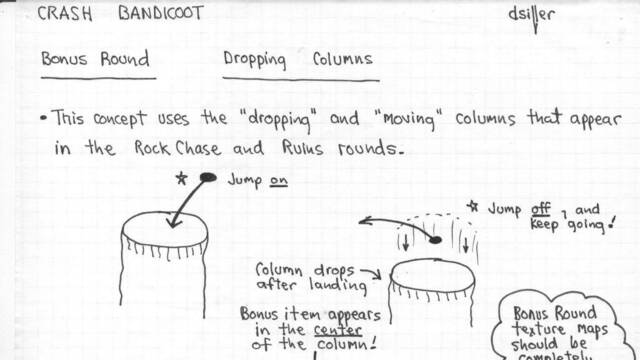 CRASH BANDICOOT
dsiller
Bonus Round
Dropping Columns
• This concept uses the "dropping" and "moving" columns that appear
in the Rock Chase and Ruins rounds.
☆ Jump on
☆ Jump off, and
keep going!
Column drops
after landing
Bonus item appears
in the center
of the column!
Bonus Round
texture maps
should be
completely